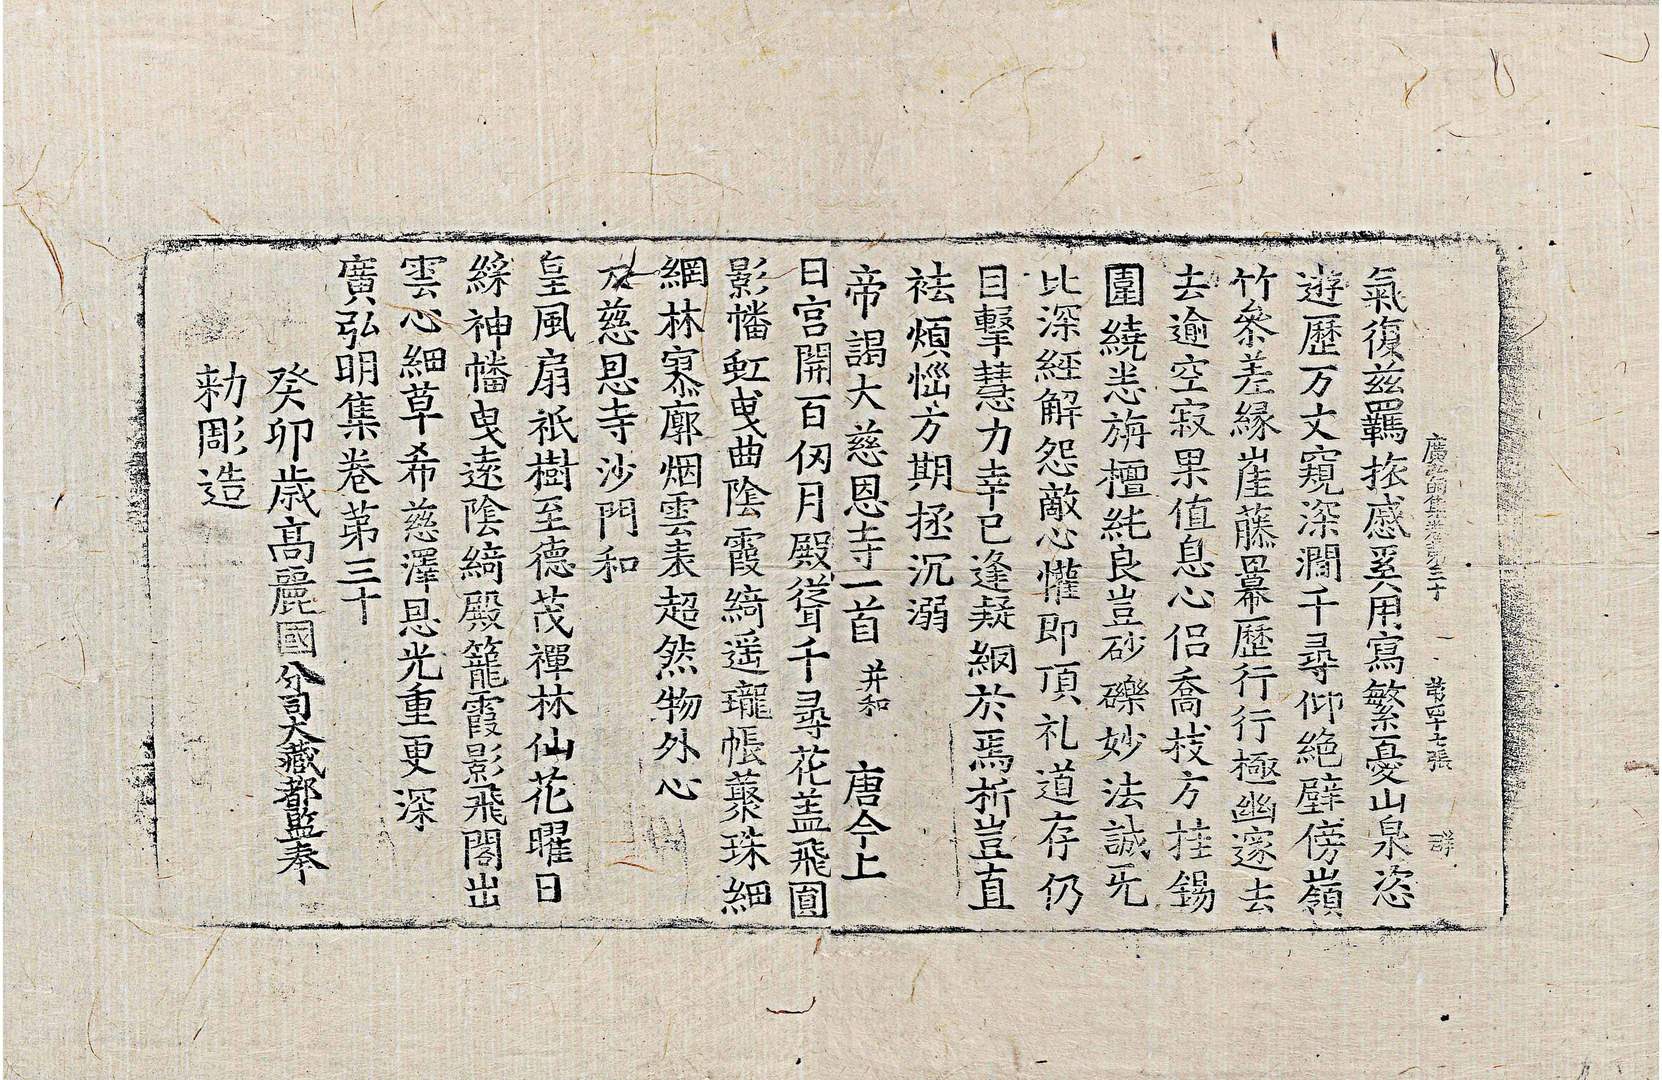 廣弘明集卷第三十 第四十七張 群
氣復茲羈旅慼奚用寫繁憂山泉恣
遊歷万丈窺深澗千尋仰絶壁傍嶺
竹參差緣崖藤羃歷行行極幽邃去
去逾空寂果值息心侶喬枝方挂錫
圍繞悉旃檀純良豈砂礫妙法誠旡
比深經解怨敵心懽即頂礼道存仍
目擊慧力幸已逢疑網於焉析豈直
祛煩惱方期拯沉溺
帝謁大慈恩寺一首 并和 唐今上
日宮開百仭月殿聳千尋花盖飛團
影幡虹曳曲陰霞綺遥瓏帳蘩珠細
網林寥廓烟雲表超然物外心
大慈恩寺沙門和
皇風扇祇樹至德茂禪林仙花曜日
綵神幡曳遠陰綺殿籠霞影飛閣出
雲心細草希慈澤恩光重更深
廣弘明集卷第三十
癸卯歲髙麗國分司大藏都監奉
勑彫造